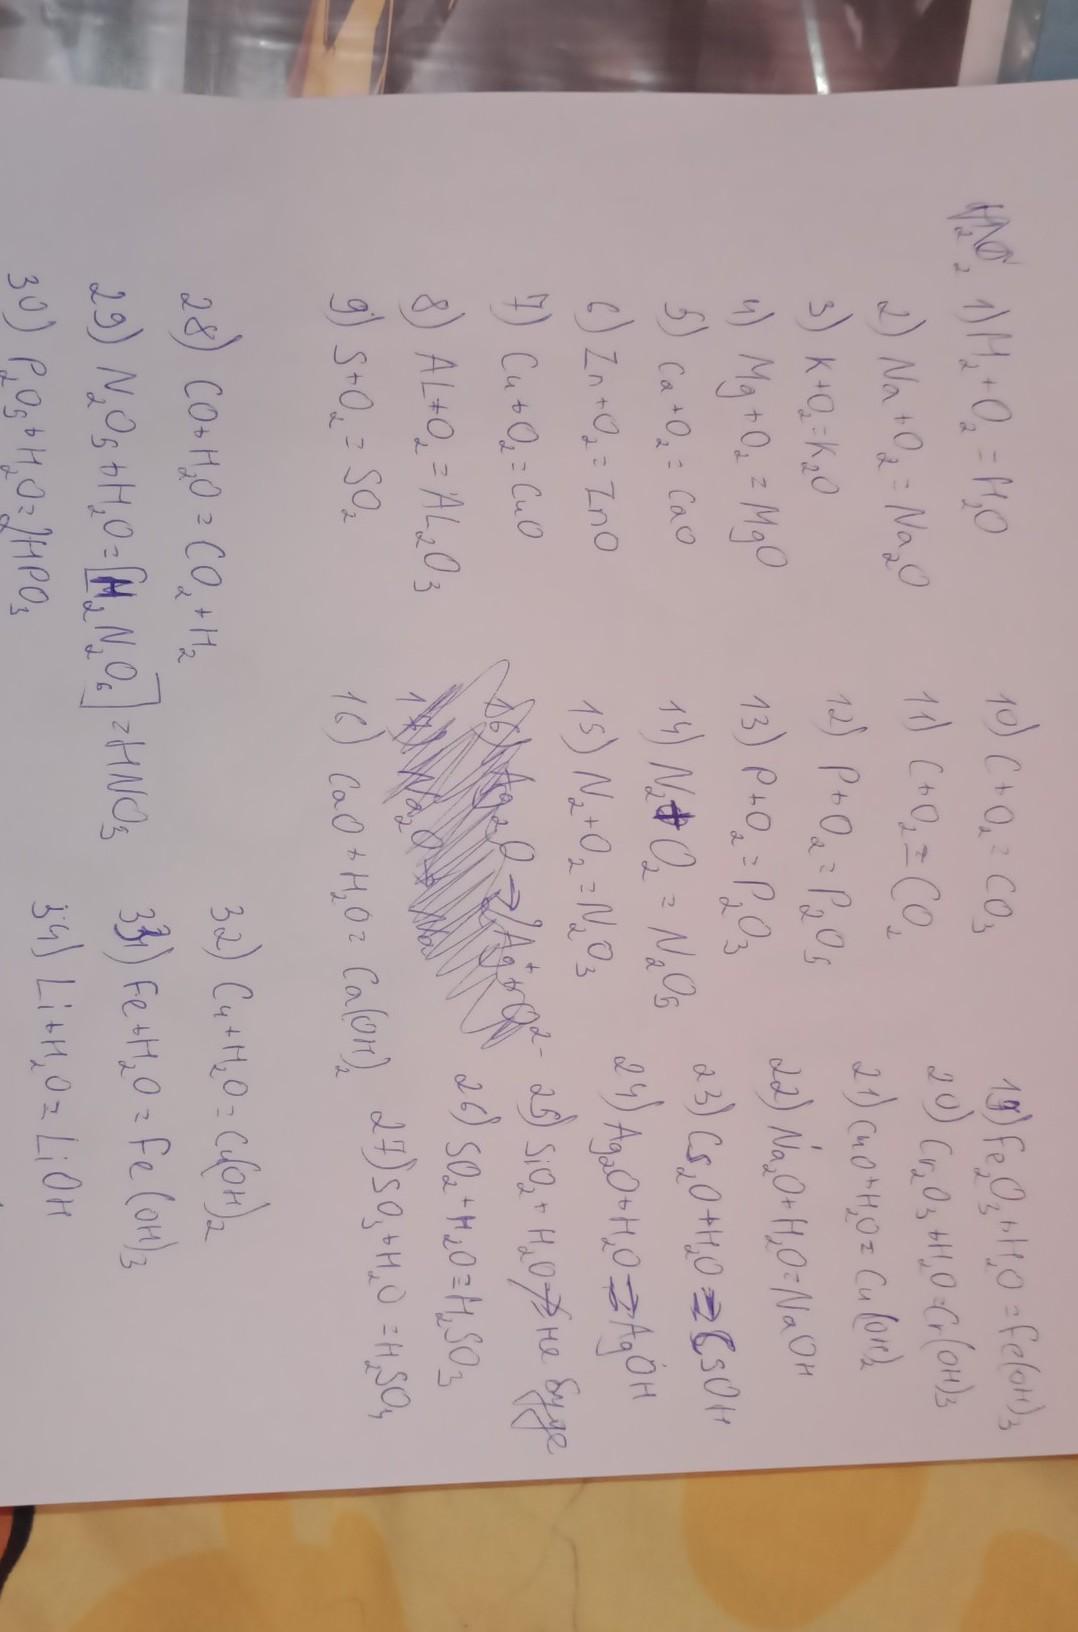 1) H2+O2=H2O
2) Na+O2=Na2O
3) K+O2=K2O
4) Mg+O2=MgO
5) Ca+O2=CaO
6) Zn+O2=ZnO
7) Cu+O2=CuO
8) AL+O2=AL2O3
9) S+O2=SO2
10) C+O2=CO3
11) C+O2=CO2
12) P+O2=P2O5
13) P+O2=P2O3
14) N2+O2=N2O5
15) N2+O2=N2O3
16) CaO+H2O=Ca(OH)2
19) Fe2O3+H2O=Fe(OH)3
20) Cr2O3+H2O=Cr(OH)3
21) CuO+H2O=Cu(OH)2
22) Na2O+H2O=NaOH
23) Cs2O+H2O=CsOH
24) Ag2O+H2O→AgOH
25) SiO2+H2O↛не буде
26) SO2+H2O=H2SO3
27) SO3+H2O=H2SO4
28) CO+H2O=CO2+H2
29) N2O5+H2O=[H2N2O6]=HNO3
30) P2O5+H2O=2HPO3
32) Cu+H2O=Cu(OH)2
33) Fe+H2O=Fe(OH)3
34) Li+H2O=LiOH